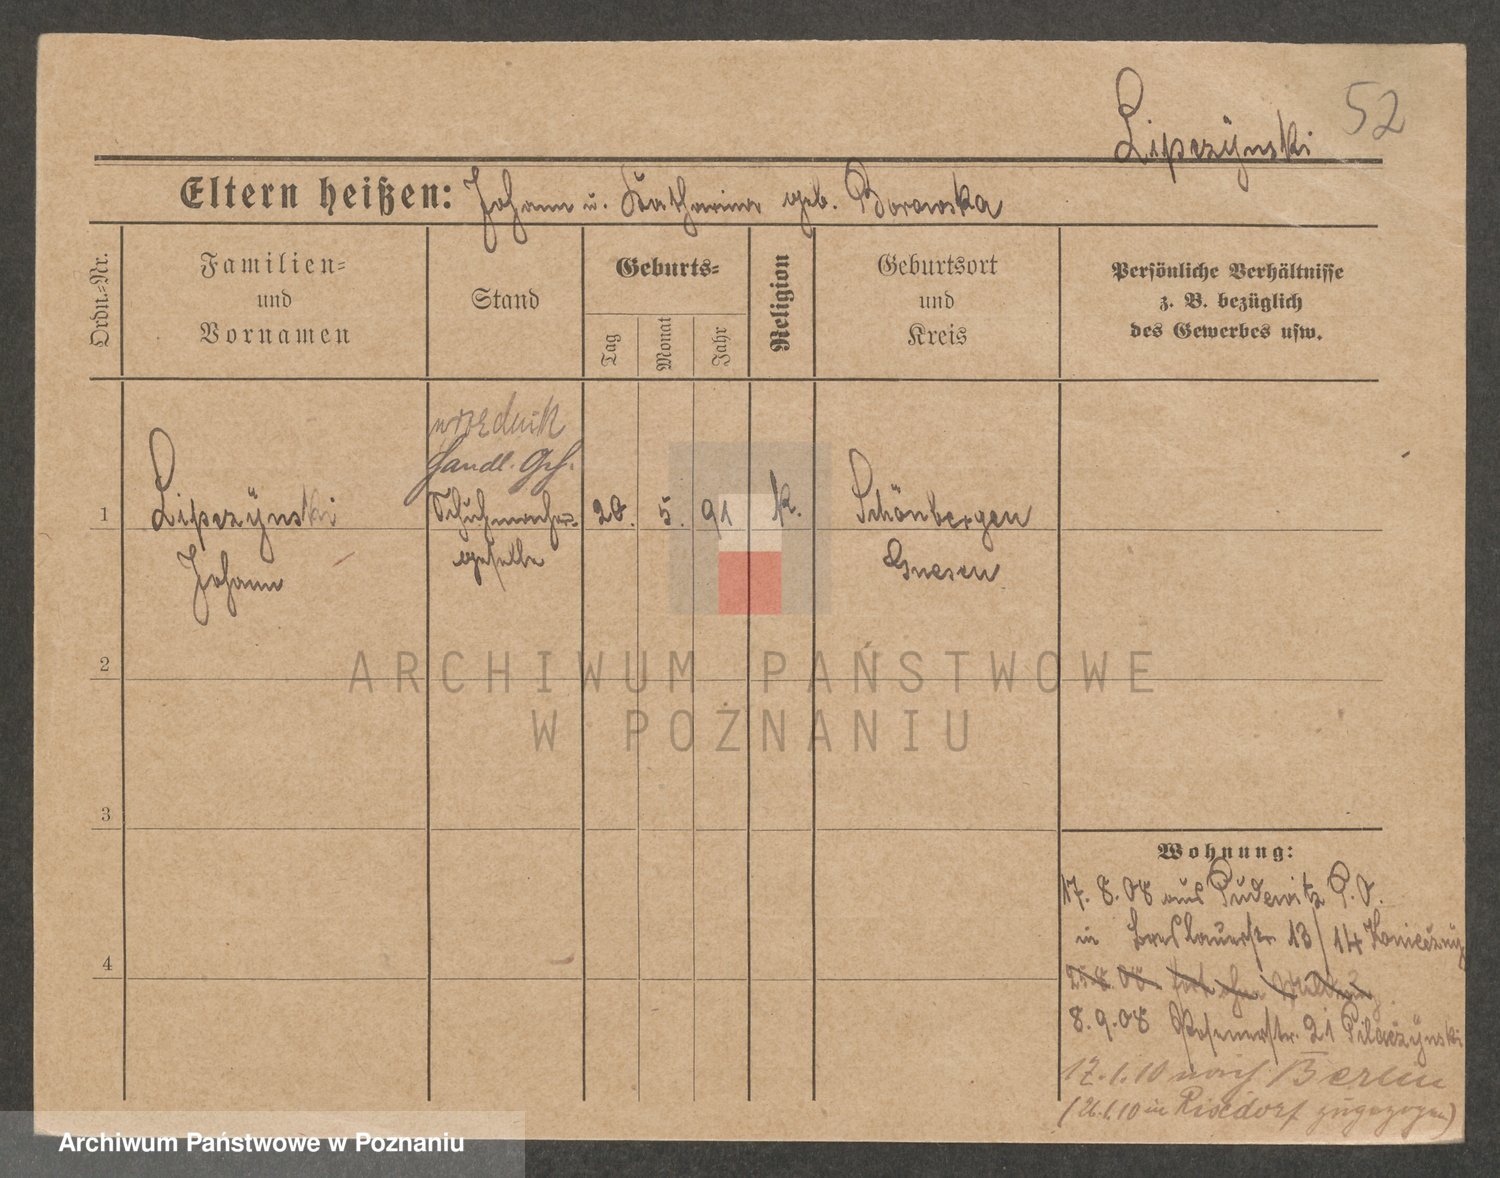 52
Lipczÿnski
Eltern heißen: Johann u. Katharina geb. Borowska
Ordn.-Nr.
Familien-
und
Vornamen
Stand
Geburts-
Tag
Monat
Jahr
Religion
Geburtsort
und
Kreis
Persönliche Verhältnisse
z. B. bezüglich
des Gewerbes usw.
Handl. Geh.
1
Lipczÿnski
Johann
Schuhmacher-
geselle
20. 5. 91 k.
Schönbergen
Gnesen
2
3
4
ARCHIWUM PAŃSTWOWE
W POZNANIU
Wohnung:
17. 8. 08 aus Pudewitz P. O.
in Breslauerstr. 13/14
25.8.08 fort ohne Meldung
8. 9. 08 Posenerstr. 21 Pilaczÿnski
17.1.10 nach Berlin
(26.1.10 in Rixdorf zugezogen)
Archiwum Państwowe w Poznaniu